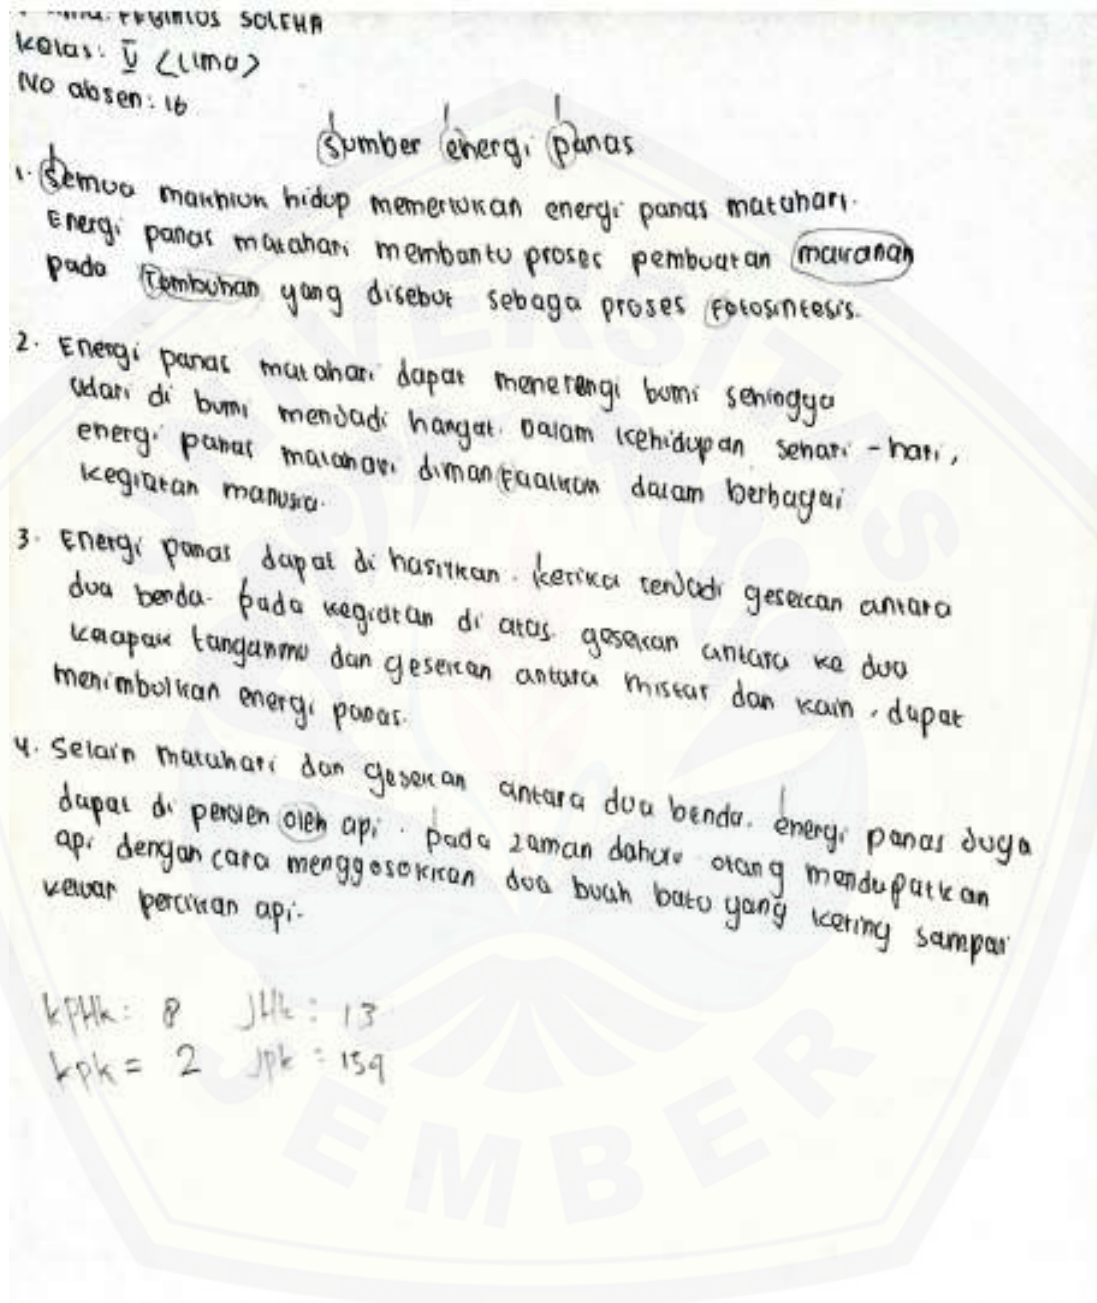 SOLEHA
Kelas: V <lima>
No absen: 16
Sumber energi panas
1. Semua makhluk hidup memerlukan energi panas matahari.
Energi panas matahari membantu proses pembuatan makanan
pada Tumbuhan yang disebut sebaga proses Fotosintesis.
2. Energi panas matahari dapat menerangi bumi sehingga
udari di bumi menjadi hangat. Dalam kehidupan sehari-hari,
energi panas matahari dimanfaatkan dalam berbagai
kegiatan manusia.
3. Energi panas dapat di hasilkan. ketika terjadi gesekan antara
dua benda. pada kegiatan di atas. gesekan antara ke dua
telapak tanganmu dan gesekan antara mistar dan kain, dapat
menimbulkan energi panas.
4. Selain matahari dan gesekan antara dua benda. energi panas juga
dapat di peroleh oleh api. pada zaman dahulu orang mendapatkan
api dengan cara menggosokkan dua buah batu yang kering sampai
keluar percikan api.
kPHk: 8 JHk: 13
kpk = 2 Jpk = 159
UNIVERSITAS
JEMBER